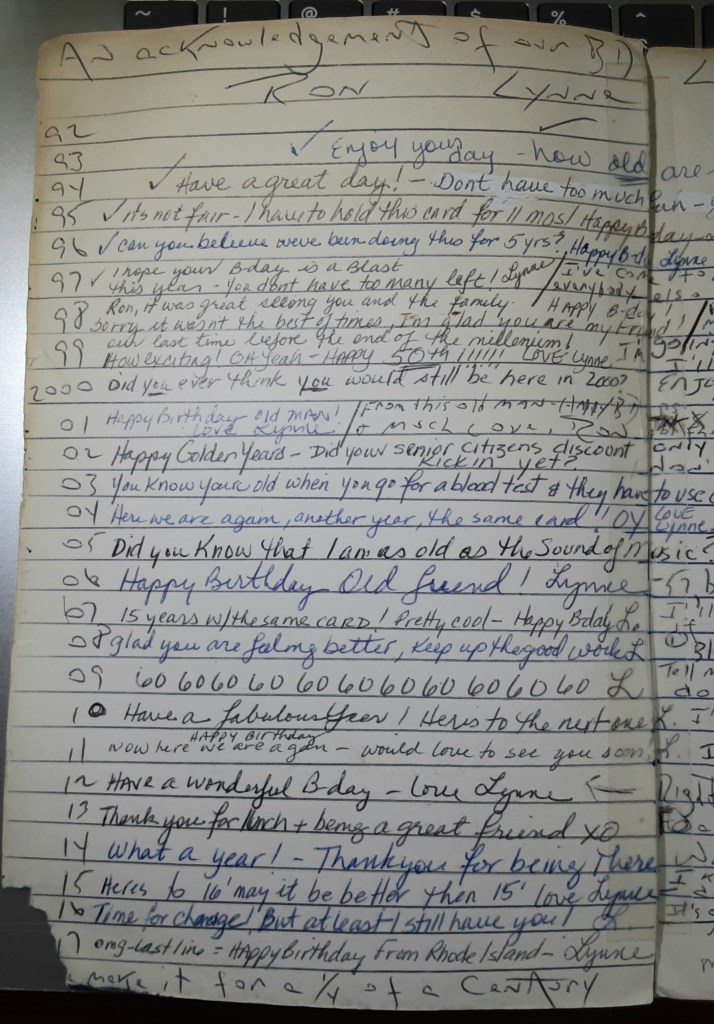 ~ ! @ # $ % ^
An acknowledgement of our BD
Ron Lynne
92
93 ✓ Enjoy your day - how old are
94 ✓ Have a great day! - Dont have too much fun -
95 ✓ its not fair - I have to hold this card for 11 mos! Happy Bday
96 ✓ can you believe weve been doing this for 5 yrs? Happy B-day Lynne
97 ✓ I hope your B-day is a Blast / I've come to
this year - you dont have too many left! Lynne / everybody else
98 Ron, it was great seeing you and the family. Happy B-day!
Sorry it wasn't the best of times, I'm glad you are my friend!
99 our last time before the end of the millenium! I'm goin
How exciting! Oh Yeah - Happy 50th!!!!!! Love Lynne I'll
2000 Did you ever think you would still be here in 2000? Enjo
01 Happy Birthday old man! / From this old man - Happy BD
Love Lynne / + much love, Ron
02 Happy Golden Years - Did your senior citizens discount only
kick in yet? don'
03 You know youre old when you go for a blood test & they have to use
04 Here we are again, another year, the same card! oy Love
Lynne
05 Did you know that I am as old as the Sound of Music?
06 Happy Birthday Old friend! Lynne
07 15 years w/the same card! Pretty cool - Happy Bday L. I'll
08 glad you are feeling better, keep up the good work L
09 60 60 60 60 60 60 60 60 60 60 60 L Tell
do
10 Have a fabulous Year! Heres to the next one L. I'
11 Now here we are again - HAPPY Birthday would love to see you soon! L. I
12 Have a wonderful B-day - love Lynne ← Right
13 Thank you for lunch + being a great friend XO
14 What a year! - Thankyou for being There
15 Heres to 16' may it be better then 15' love Lynne
16 Time for change! But at least I still have you! L. It's
17 omg - last line = Happy Birthday From Rhode Island - Lynne
make it for a 1/4 of a Century